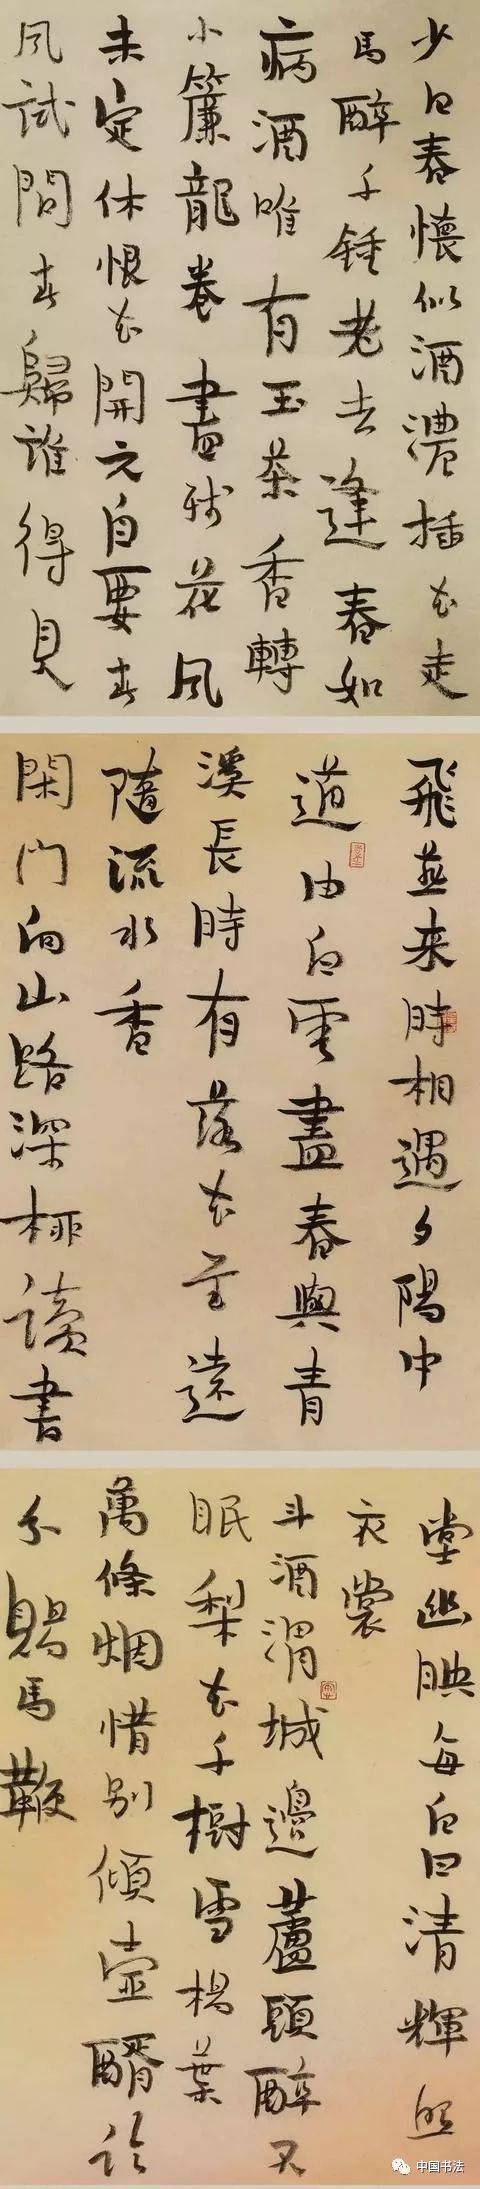 少日春懷似酒濃插花走
馬醉千鍾老去逢春如
病酒唯有玉茶香轉
小簾龍卷晝殘花風
未定休恨花開元自要春
風試問春歸誰得見
飛燕来時相遇夕陽中
道由白雲盡春與青
溪長時有落花至遠
隨流水香
閑門向山路深柳讀書
堂幽映每白日清輝照
衣裳
斗酒渭城邊蘆頭醉不
眠梨花千樹雪楊葉
萬條烟惜别傾壺醑臨
分賜馬鞭
中国书法